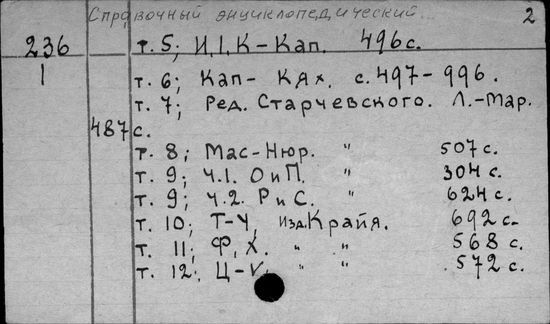 Справочный энциклопедический... 2
236 т. 5; И, І, К-Кап. 496 с.
1 т. 6; Кап- Кях. с. 497-996.
т. 7; Ред. Старчевского. Л.-Мар.
487 с.
т. 8; Мас-Нюр. " 507 с.
т. 9; ч.1. О и П. " 304 с.
т. 9; ч.2. Р и С. " 624 с.
т. 10; Т-Ч, Изд. Крайя. 692 с.
т. 11; Ф, Х. " " 568 с.
т. 12; Ц-V. " " 572 с.